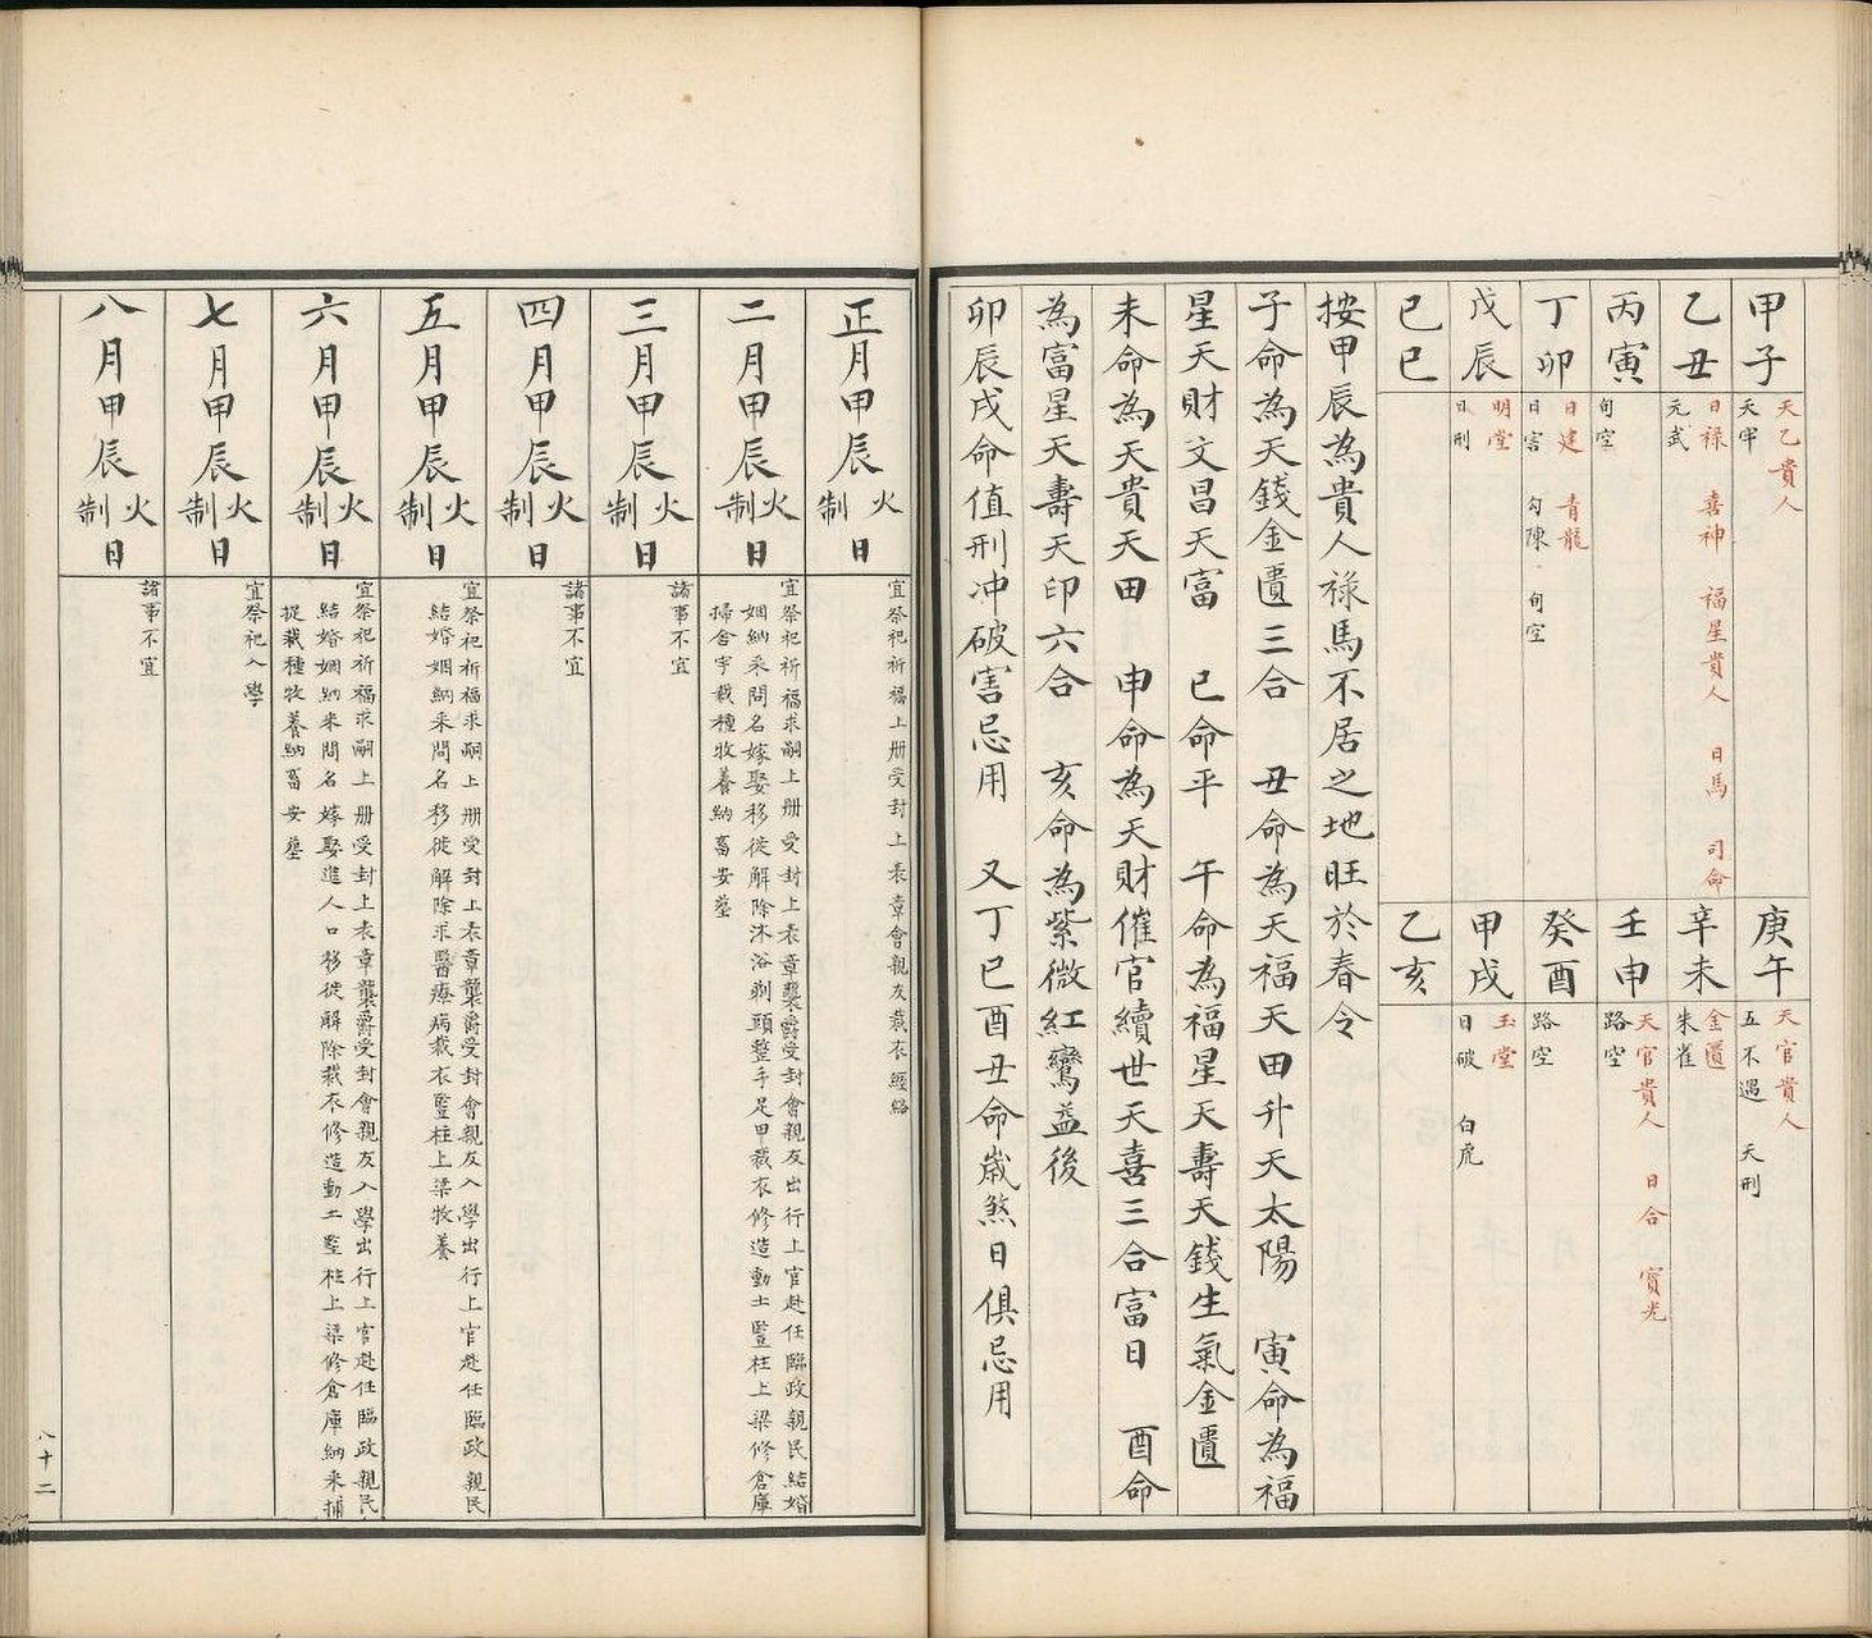 甲子
天乙貴人
天牢
乙丑
日祿 喜神 福星貴人 日馬 司命
元武
丙寅
旬空
丁卯
日建 青龍
日害 勾陳 旬空
戊辰
明堂
日刑
己巳
庚午
天官貴人
五不遇 天刑
辛未
金匱
朱雀
壬申
天官貴人 日合 寳光
路空
癸酉
路空
甲戌
玉堂
日破 白虎
乙亥
按甲辰為貴人祿馬不居之地旺於春令
子命為天錢金匱三合 丑命為天福天田升天太陽 寅命為福
星天財文昌天富 巳命平 午命為福星天壽天錢生氣金匱
未命為天貴天田 申命為天財催官續世天喜三合富日 酉命
為富星天壽天印六合 亥命為紫微紅鸞益後
卯辰戌命值刑冲破害忌用 又丁巳酉丑命歲煞日俱忌用
正月甲辰火制日
宜祭祀祈福上册受封上表章會親友裁衣經絡
二月甲辰火制日
宜祭祀祈福求嗣上册受封上表章襲爵受封會親友出行上官赴任臨政親民結婚
姻納采問名嫁娶移徙解除沐浴剃頭整手足甲裁衣修造動土豎柱上梁修倉庫
掃舍宇栽種牧養納畜安塟
三月甲辰火制日
諸事不宜
四月甲辰火制日
諸事不宜
五月甲辰火制日
宜祭祀祈福求嗣上册受封上表章襲爵受封會親友入學出行上官赴任臨政親民
結婚姻納采問名移徙解除求醫療病裁衣豎柱上梁牧養
六月甲辰火制日
宜祭祀祈福求嗣上册受封上表章襲爵受封會親友入學出行上官赴任臨政親民
結婚姻納采問名嫁娶進人口移徙解除裁衣修造動土豎柱上梁修倉庫納采捕
捉栽種牧養納畜安塟
七月甲辰火制日
宜祭祀入學
八月甲辰火制日
諸事不宜
八十二